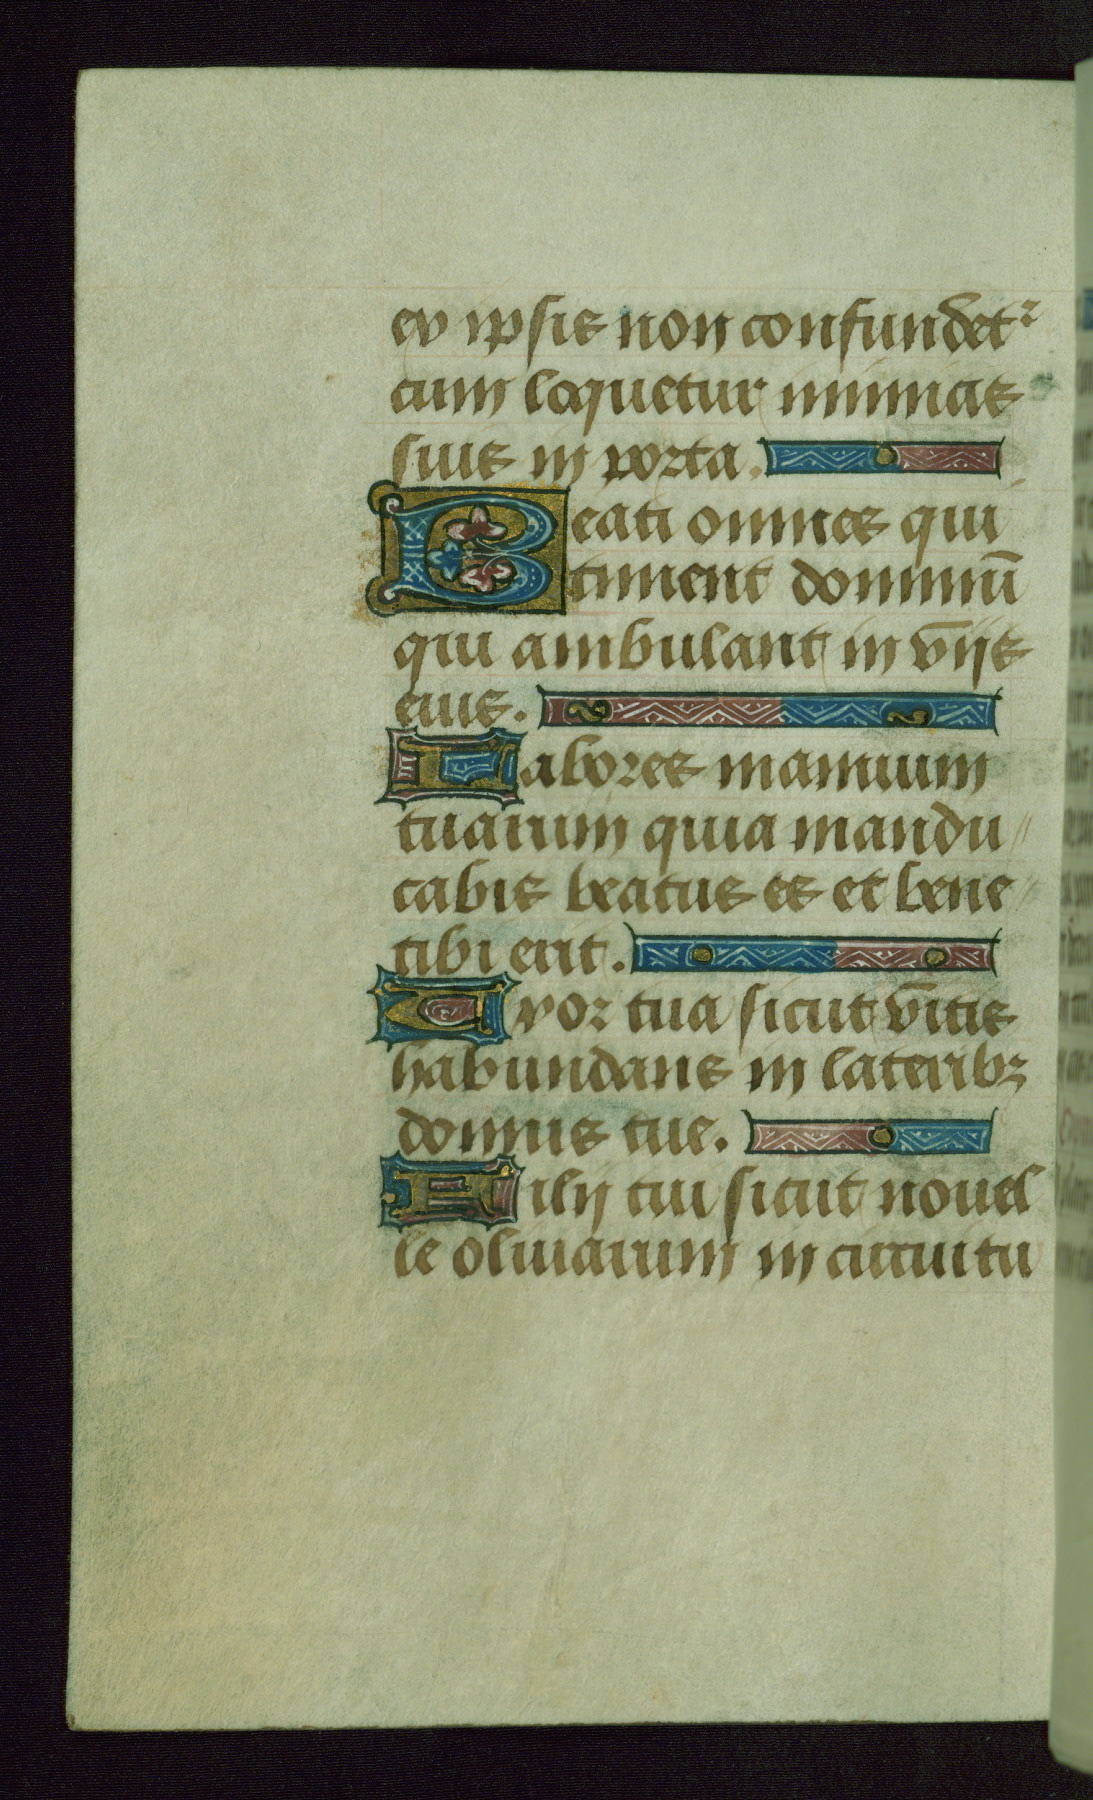 ex ipsis non confundet᷑
cum loquetur inimicis
suis in porta.
Beati omnes qui
timent dominū
qui ambulant in viis
eius.
Labores manuum
tuarum quia mandu
cabis beatus es et bene
tibi erit.
Uxor tua sicut vitis
habundans in lateribꝫ
domus tue.
Filij tui sicut nouel
le oliuarum in circuitu